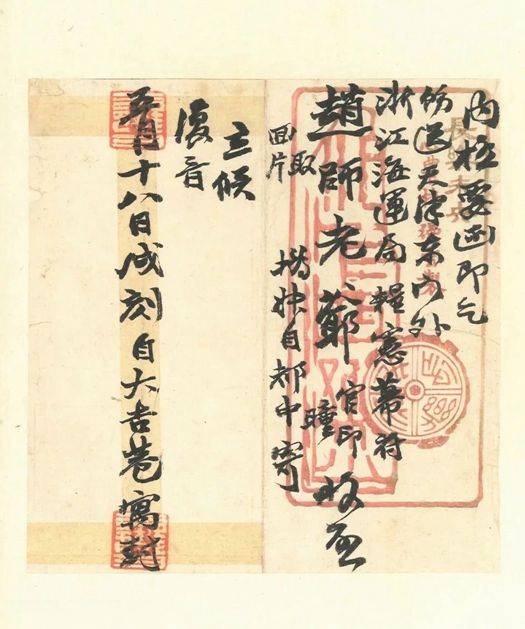 內極要函即乞
飭送天津東門外
浙江海運局糧憲幕府
趙師老爺 官印 曈 收啟
回片
取
楷姝自都中寄
立候
復音
五月十八日戌刻自大吉巷寓封